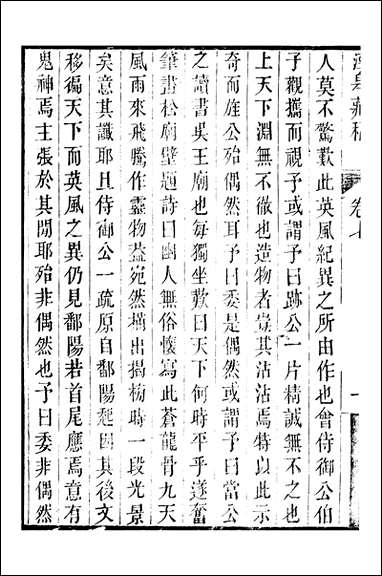 人莫不驚歎此英風紀異之所由作也會侍御公伯
子觀攜而視予或謂予曰跡公一片精誠無不之也
上天下淵無不徹也造物者豈其沾沾焉特以此示
奇而旌公殆偶然耳予曰委是偶然或謂予曰當公
之讀書吳王廟也每獨坐歎曰天下何時平乎遂奮
筆畫松廟壁題詩曰幽人無俗懷寫此蒼龍骨九天
風雨來飛騰作靈物葢宛然描出揭榜時一段光景
矣意其讖耶且侍御公一疏原自鄱陽起因其後文
移徧天下而英風之異仍見鄱陽若首尾應焉意有
鬼神焉主張於其閒耶殆非偶然也予曰委非偶然
卷七